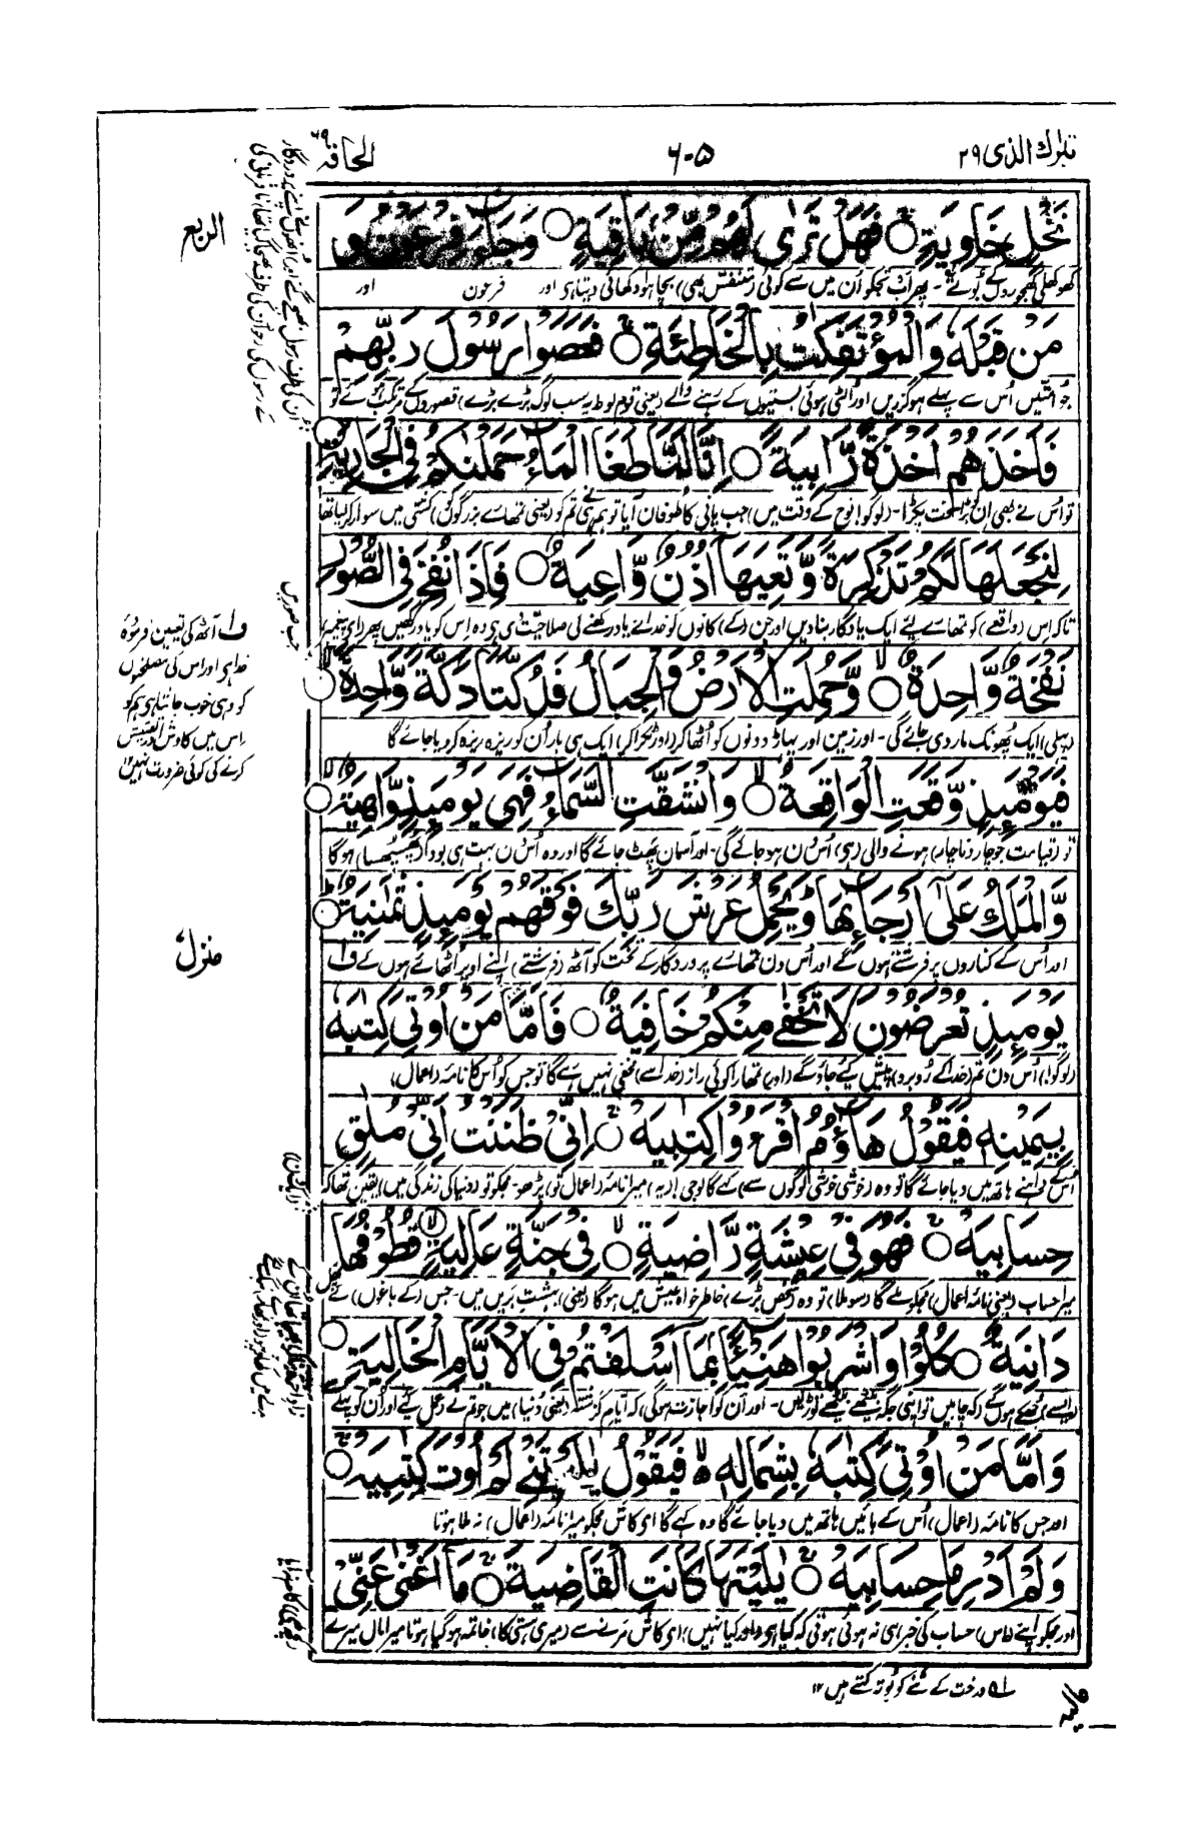 تبٰرك الذی ۲۹
۶۰۵
الحاقة ۶۹
نَخْلٍ خَاوِيَةٍ ○ فَهَلْ تَرٰى لَهُمْ مِّنْۢ بَاقِيَةٍ ○ وَجَآءَ فِرْعَوْنُ وَ
کھوکھلی کھجوروں کے بُوٹے - پھر اب تجکو اُن میں سے کوئی (متنفس بھی) بچا ہوا دکھائی دیتا ہی اور فرعون اور
مَنْ قَبْلَهٗ وَالْمُؤْتَفِكٰتُ بِالْخَاطِئَةِ ○ فَعَصَوْا رَسُوْلَ رَبِّهِمْ
جو اُمتیں اُس سے پہلے ہو گزریں اور اُلٹی ہوئی بستیوں کے رہنے والے (یعنی قوم لوط یہ سب لوگ بڑے بڑے) قصوروں کے مرتکب ہوئے تو
فَاَخَذَهُمْ اَخْذَةً رَّابِيَةً ○ اِنَّا لَمَّا طَغَا الْمَآءُ حَمَلْنٰكُمْ فِى الْجَارِيَةِ ○
تو اُس نے بھی ان کو بڑا سخت پکڑا - (لوگو! نوح کے وقت میں) جب پانی کا طوفان آیا تو ہم ہی نے تم کو (یعنی تمھارے بزرگوں کو) کشتی میں سوار کر لیا تھا
لِنَجْعَلَهَا لَكُمْ تَذْكِرَةً وَّتَعِيَهَآ اُذُنٌ وَّاعِيَةٌ ○ فَاِذَا نُفِخَ فِى الصُّوْرِ
تاکہ اِس (واقعے) کو تمھارے لیے ایک یادگار بنا دیں اور جن (کے) کانوں کو خدا نے یاد رکھنے کی صلاحیت دی ہی وہ اِس کو یاد رکھیں پھر (ای پیغمبر)
نَفْخَةٌ وَّاحِدَةٌ ○ وَّحُمِلَتِ الْاَرْضُ وَالْجِبَالُ فَدُكَّتَا دَكَّةً وَّاحِدَةً ○
(پہلی) ایک پُھونک مار دی جائے گی - اور زمین اور پہاڑ دونوں کو اُٹھا کر (اور ٹکرا کر) ایک ہی بار اُن کو ریزہ ریزہ کر دیا جائے گا
فَيَوْمَئِذٍ وَّقَعَتِ الْوَاقِعَةُ ○ وَانْشَقَّتِ السَّمَآءُ فَهِىَ يَوْمَئِذٍ وَّاهِيَةٌ ○
تو (قیامت جو چار و ناچار) ہونے والی (ہی) اُس دن ہو جائے گی - اور آسمان پھٹ جائے گا اور وہ اُس دن بہت ہی بودا (پھسپھسا) ہوگا
وَّالْمَلَكُ عَلٰٓى اَرْجَآئِهَا وَيَحْمِلُ عَرْشَ رَبِّكَ فَوْقَهُمْ يَوْمَئِذٍ ثَمٰنِيَةٌ ○
اور اُس کے کناروں پر فرشتے ہوں گے اور اُس دن تمھارے پروردگار کے تخت کو آٹھ (فرشتے) اپنے اوپر اُٹھائے ہوں گے ف۱
يَوْمَئِذٍ تُعْرَضُوْنَ لَا تَخْفٰى مِنْكُمْ خَافِيَةٌ ○ فَاَمَّا مَنْ اُوْتِىَ كِتٰبَهٗ
(لوگو!) اُس دن تم (خدا کے رُوبرو) پیش کیے جاؤ گے (اور) تمھارا کوئی راز (خدا سے) مخفی نہیں رہے گا تو جس کو اُس کا نامہ (اعمال)
بِيَمِيْنِهٖ فَيَقُوْلُ هَآؤُمُ اقْرَءُوْا كِتٰبِيَهْ ○ اِنِّىْ ظَنَنْتُ اَنِّىْ مُلٰقٍ
اُس کے داہنے ہاتھ میں دیا جائے گا تو وہ (خوشی خوشی لوگوں سے) کہے گا لو جی (یہ) میرا نامہ (اعمال تو) پڑھو - مجکو تو (دنیا کی زندگی میں) یقین تھا کہ
حِسَابِيَهْ ○ فَهُوَ فِىْ عِيْشَةٍ رَّاضِيَةٍ ○ فِىْ جَنَّةٍ عَالِيَةٍ ○ قُطُوْفُهَا
میرا حساب (یعنی نامہ اعمال) مجکو ملے گا (سو ملا) تو وہ (شخص بڑے) خاطر خواہ عیش میں ہوگا (یعنی) بہشت بریں میں - جس (کے باغوں) کے
دَانِيَةٌ ○ كُلُوْا وَاشْرَبُوْا هَنِيْٓئًۢا بِمَآ اَسْلَفْتُمْ فِى الْاَيَّامِ الْخَالِيَةِ ○
(ایسے) جُھکے ہوں گے (کہ چاہیں تو اپنی جگہ بیٹھے بیٹھے توڑ لیں - اور اُن کو اجازت ہوگی) کہ ایام گزشتہ (یعنی دُنیا) میں جو تم نے (عمل کیے اور اُن کو پہلے
وَاَمَّا مَنْ اُوْتِىَ كِتٰبَهٗ بِشِمَالِهٖ فَيَقُوْلُ يٰلَيْتَنِىْ لَمْ اُوْتَ كِتٰبِيَهْ ○
اور جس کا نامہ (اعمال) اُس کے بائیں ہاتھ میں دیا جائے گا وہ کہے گا ای کاش مجکو میرا نامہ (اعمال) نہ ملا ہوتا
وَلَمْ اَدْرِ مَا حِسَابِيَهْ ○ يٰلَيْتَهَا كَانَتِ الْقَاضِيَةَ ○ مَآ اَغْنٰى عَنِّىْ
اور مجکو اپنے (اس) حساب کی خبر ہی نہ ہوئی ہوتی کہ کیا ہی (اور کیا نہیں) ای کاش مرنے سے (میری ہستی کا) خاتمہ ہو گیا ہوتا میرا مال میرے
الربع
ف۱ آٹھ کی تعیین فرمودہ
خدا ہی اور اس کی مصلحتوں
کو وہی خوب جانتا ہی ہم کو
اِس میں کاوش اور تفتیش
کرنے کی کوئی ضرورت نہیں ۱۲
منزل
لے درخت کے تنے کو بُوٹہ کہتے ہیں ۱۲